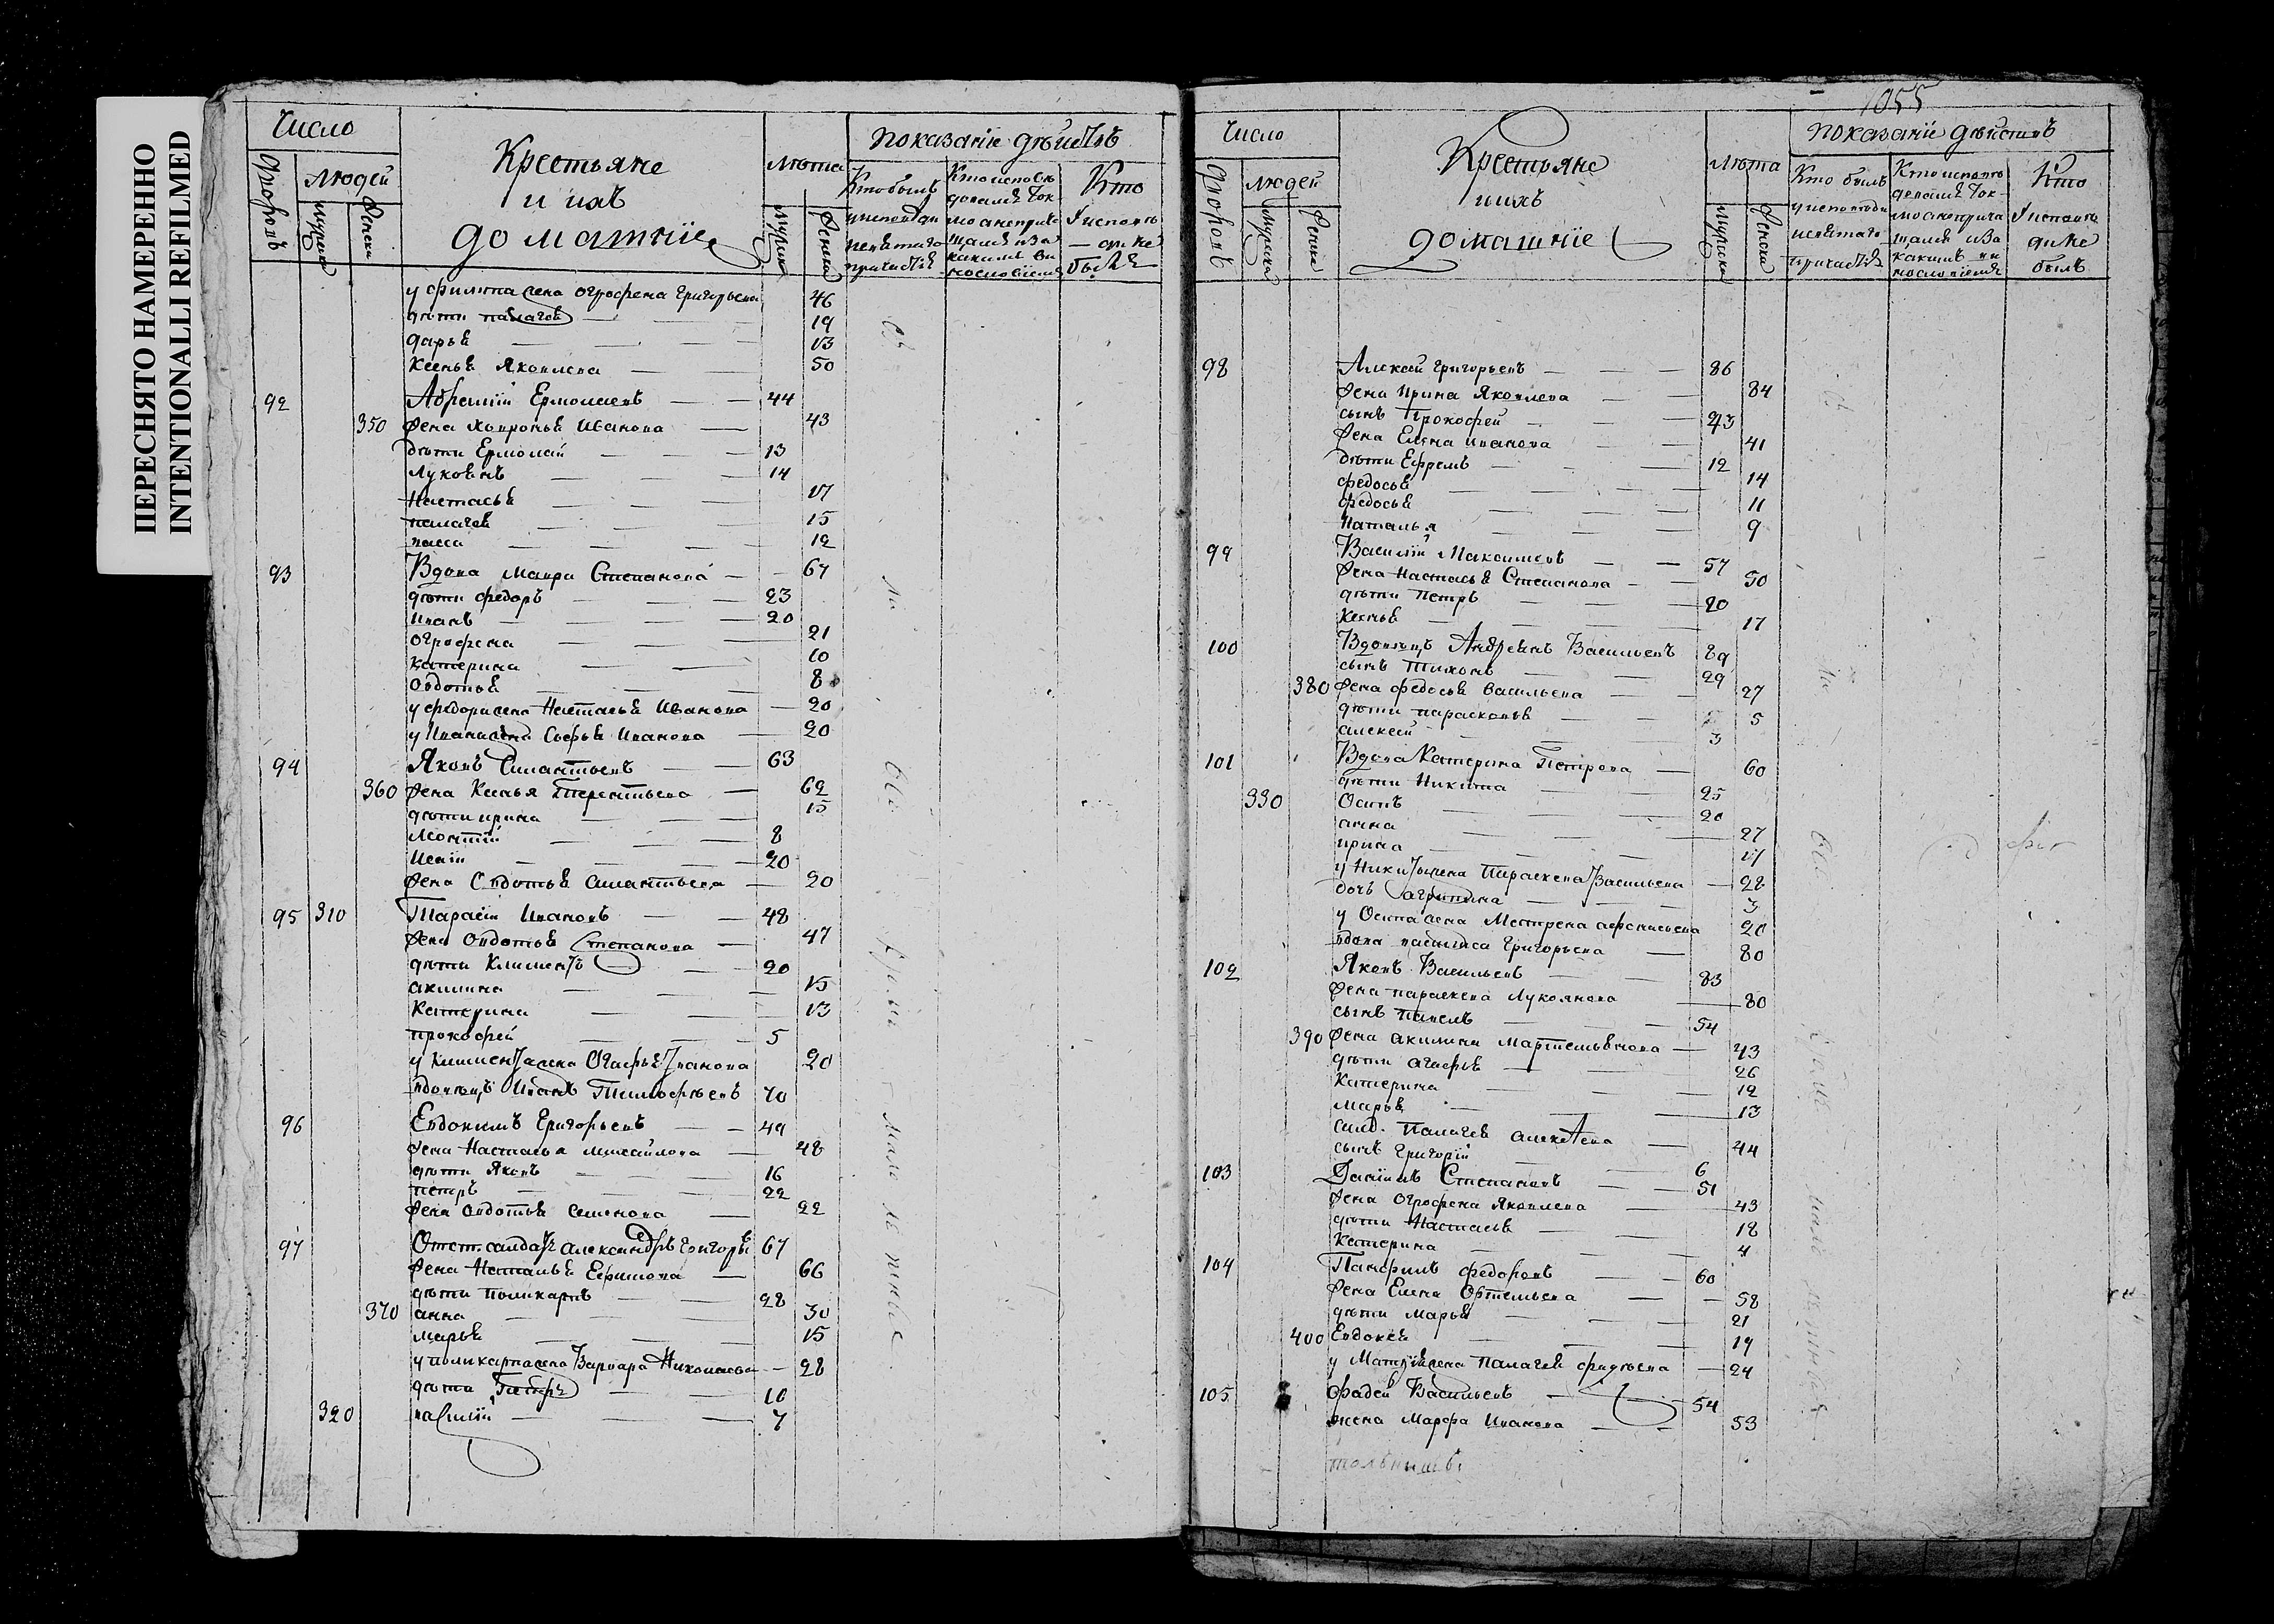 ПЕРЕСНЯТО НАМЕРЕННО
INTENTIONALLI REFILMED
Число
Крестьяне
и ихъ
домашніе
лѣта
показаніе дѣйствъ
дворовъ
людей
мужеска
женска
мужеск
женска
Кто былъ
у исповѣди
и святаго
причастія
Кто исповѣ
довался ток
мо а не прича
щался и за
какимъ ви
нословіемъ
Кто
у исповѣ
ди не
былъ
у филипа жена огрофена григорьева 46
дѣти палагея 19
дарья 13
Ксенья Яковлева 50
92 Абрамій Ермолаевъ 44
350 жена Ховронья Иванова 43
дѣти Ермолай 13
Лукоянъ 14
Настасья 17
палагея 15
12
93 Вдова Мавра Степанова 67
дѣти федоръ 23
Иванъ 20
огрофена 21
катерина 10
овдотья 8
у федора жена Настасья Иванова 20
у Ивана жена Софья Иванова 20
94 Яковъ Силантьевъ 63
360 жена Ксенья Терентьева 62
дѣти ирина 15
Леонтій 8
Исаій 20
жена Овдотья силантьева 20
95 310 Тарасій Ивановъ 48
жена Овдотья Степанова 47
дѣти Климентъ 20
акилина 15
Катерина 13
прокофей 5
у климента жена Огафья Иванова 20
вдовецъ Иванъ Тимофѣевъ 70
96 Евдокимъ Григорьевъ 49
жена Настасья михайлова 48
дѣти Яковъ 16
петръ 22
жена овдотья семенова 22
97 Отст. салдатъ александръ Григорьевъ 67
жена Наталья Ефимова 66
дѣти поликарпъ 28
370 анна 30
марья 15
у поликарпа жена Варвара Николаева 28
дѣти Петръ 10
320 василій 7
1055
Число
Крестьяне
и ихъ
домашніе
лѣта
показаніе дѣйствъ
дворовъ
людей
мужеска
женска
мужеска
женска
Кто былъ
у исповѣди
и святаго
причастія
Кто исповѣ
довался ток
мо а не прича
щался и за
какимъ ви
нословіемъ
Кто
у исповѣ
ди не
былъ
98 Алексей григорьевъ 86
жена Ирина Яковлева 84
сынъ Прокофей 43
жена Елена иванова 41
дѣти Ефремъ 12
федосья 14
федосья 11
Наталья 9
99 Василій Максимовъ 57
жена Настасья Степанова 50
дѣти петръ 20
Ксенья 17
100 Вдовецъ Андреянъ Васильевъ 89
сынъ Тихонъ 29
380 жена федосья васильева 27
дѣти парасковья 5
алексей 3
101 Вдова Катерина Петрова 60
дѣти Никита 25
330 Осипъ 20
анна 27
ирина 17
у Никиты жена Параскева Васильева 28
дочь агрипина 3
у Осипа жена Матрена афонасьева 20
вдова василиса Григорьева 80
102 Яковъ Васильевъ 83
жена параскева Лукоянова 80
сынъ павелъ 54
390 жена акилина Мартемьянова 43
дѣти агафья 26
Катерина 12
Марья 13
салд. Палагея алексѣева 44
сынъ григорій 6
103 Даніилъ Степановъ 51
жена Огрофена Яковлева 43
дѣти Настасья 18
Катерина 4
104 Панфилъ федоровъ 60
жена Елена Ортемьева 58
дѣти Марья 21
400 Евдокея 19
у Матфѣя жена Палагея фадѣева 24
105 фадей Васильевъ 54
жена Марфа Иванова 53